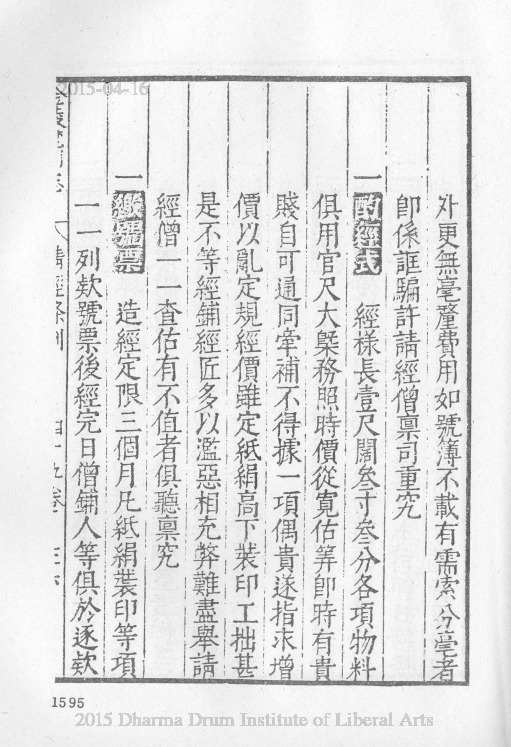 2015-04-16
外更無毫釐費用如號簿不載有需索分毫者
卽係誆騙許請經僧禀司重究
一酌經式　經樣長壹尺闊叁寸叁分各項物料
俱用官尺大槩務照時價從寬估筭卽時有貴
賤自可通同牽補不得據一項偶貴遂指求增
價以亂定規經價雖定紙絹高下裝印工拙甚
是不等經鋪經匠多以濫惡相充弊難盡舉請
經僧一一查估有不值者俱聽禀究
一繳號票　造經定限三個月凡紙絹裝印等項
一一列款號票後經完日僧鋪人等俱於逐款
請經條例　四十九卷
1595
2015 Dharma Drum Institute of Liberal Arts